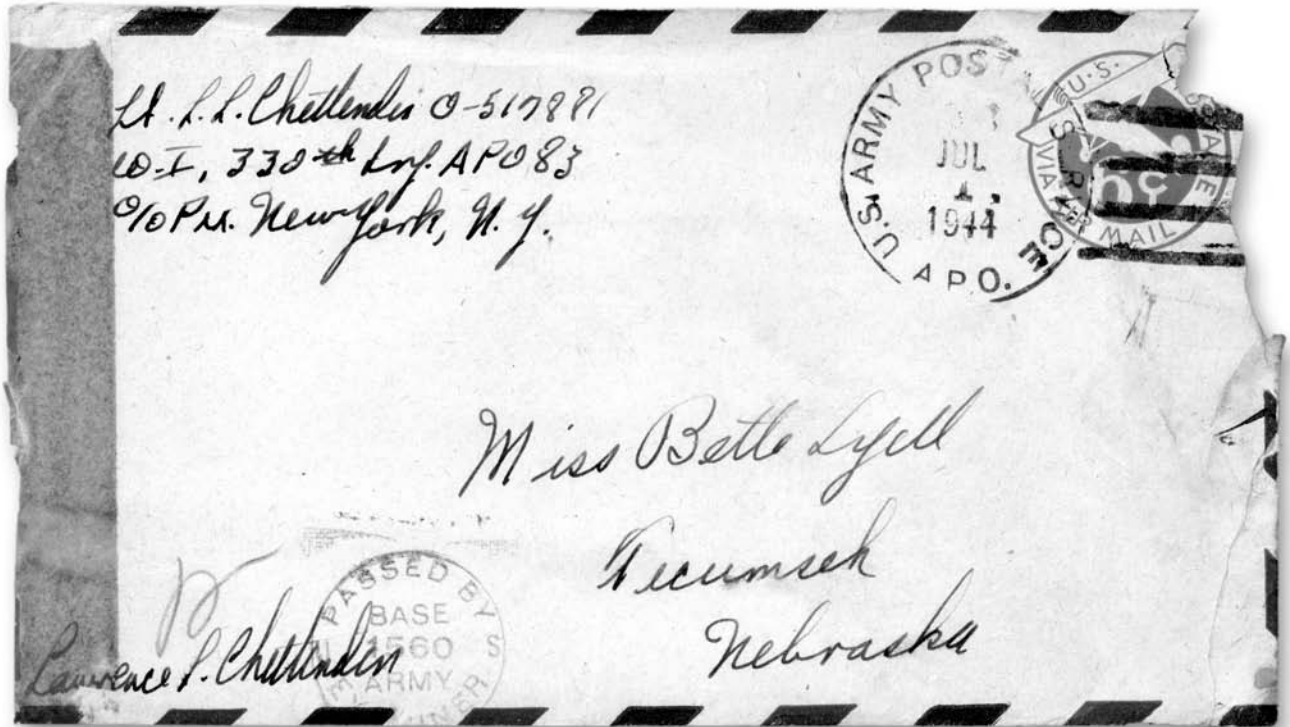 Lt. L.L. Chittenden O-517881
Co. I, 330th Inf. APO 83
c/o P.M. New York, N.Y.
U.S. ARMY POSTAL SERVICE
JUL
1
1944
A P O.
U.S. POSTAGE
6¢
VIA AIR MAIL
Miss Bette Lyell
Tecumseh
Nebraska
PASSED BY
BASE
1560
ARMY
Lawrence L. Chittenden